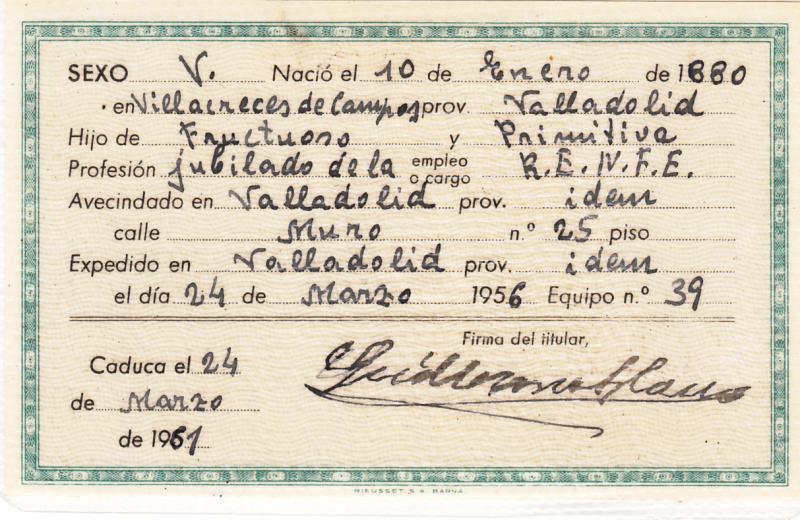 SEXO V. Nació el 10 de Enero de 1880
en Villacreces de Campos prov. Valladolid
Hijo de Fructuoso y Primitiva
Profesión jubilado de la empleo o cargo R.E.N.F.E.
Avecindado en Valladolid prov. idem
calle Muro n.º 25 piso
Expedido en Valladolid prov. idem
el día 24 de Marzo 1956 Equipo n.º 39
Firma del titular,
Caduca el 24
de Marzo
de 1961
RIEUSSET S.A. BARNA